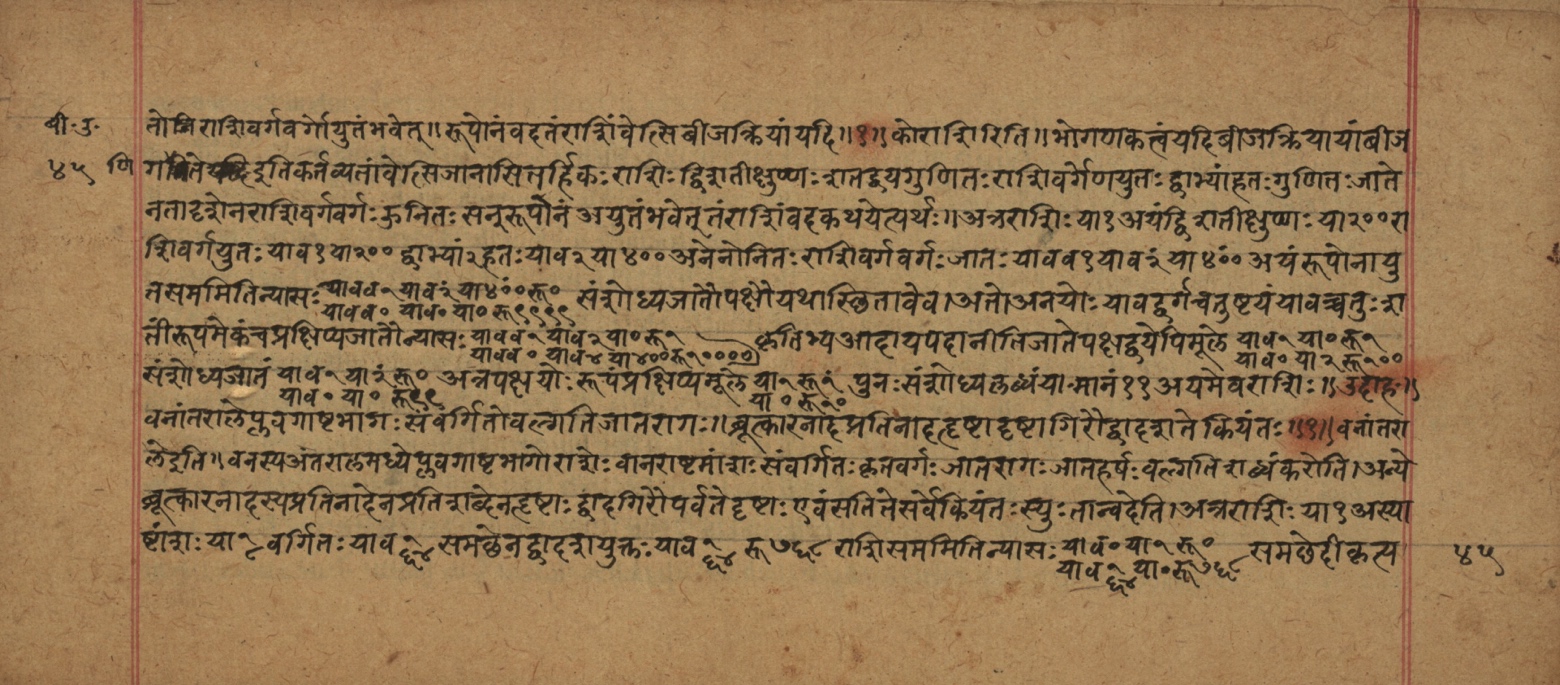 बी॰उ॰
नोनिराशिवर्गवर्गोयुतंभवेत्॥रूपोनंवदतंराशिंवेत्सिबीजक्रियांयदि॥१॥कोराशिरिति॥भोगणकत्वंयदिबीजक्रियायांबीज
४५ णि गणितेयद्धिइतिकर्तव्यतांवेत्सिजानासितर्हिकःराशिःद्विशतीक्षुण्णःशतद्वयगुणितःराशिवर्गेणयुतःद्वाभ्यांहतःगुणितःजाते
नतादृशेनराशिवर्गवर्गःऊनितःसन्रूपोनंअयुतंभवेत्तंराशिंवदकथयेत्यर्थः॥अत्रराशिःया१अयंद्विशतीक्षुण्णःया२००रा
शिवर्गयुतःयाव१या२००द्वाभ्यां२हतःयाव२या४००अनेनोनितःराशिवर्गवर्गःजातःयावव१यावर२ंया४०ं०अयंरूपोनायु
तसममितिन्यासःयावव१याव२ंया४०ं०रू० संशोध्यजातौपक्षौयथास्छितावेव।अतोअनयोःयावद्वर्गचतुष्टयंयावच्चतुःश
यावव०याव०या०रू९९९९
तींरूपमेकंचप्रक्षिप्यजातौन्यासःयावव१याव२या०रू१ कृतिभ्यआदायपदानीतिजातेपक्षद्वयेपिमूलेयाव१या०रू१
यावव०याव४या४००रू१०००० याव०या२रू१००
संशोध्यजातंयाव१या२ंरू० अत्रपक्षयोःरूपंप्रक्षिप्यमूलेया१रू१ं पुनःसंशोध्यलब्धंया॰मानं११अयमेवराशिः॥उदाह॰॥
याव०या०रू९९ या०रू१०
वनांतरालेप्लवगाष्टभागःसंवर्गितोवल्गतिजातरागः॥ब्रूत्कारनादप्रतिनादहृष्टादृष्टागिरौद्वादशतेकियंतः॥१॥वनांतरा
लेइति॥वनस्यअंतरालमध्येप्लवगाष्टभागोराशेःवानराष्टमांशःसंवर्गितःकृतवर्गःजातरागःजातहर्षःवल्गतिशब्धंकरोति।अन्ये
ब्रूत्कारनादस्यप्रतिनादेनप्रतिशब्देनहृष्टाःद्वादगिरौपर्वतेदृष्टाःएवंसतितेसर्वेकियंतःस्युःतान्वदेति।अत्रराशिःया१अस्या
ष्टांशःया१/८वर्गितःयाव१/६४समछेनद्वादशयुक्तःयाव१/६४रू७६८राशिसममितिन्यासःयाव०या१रू० समछेदीकृत्य ४५
याव१/६४या०रू७६८